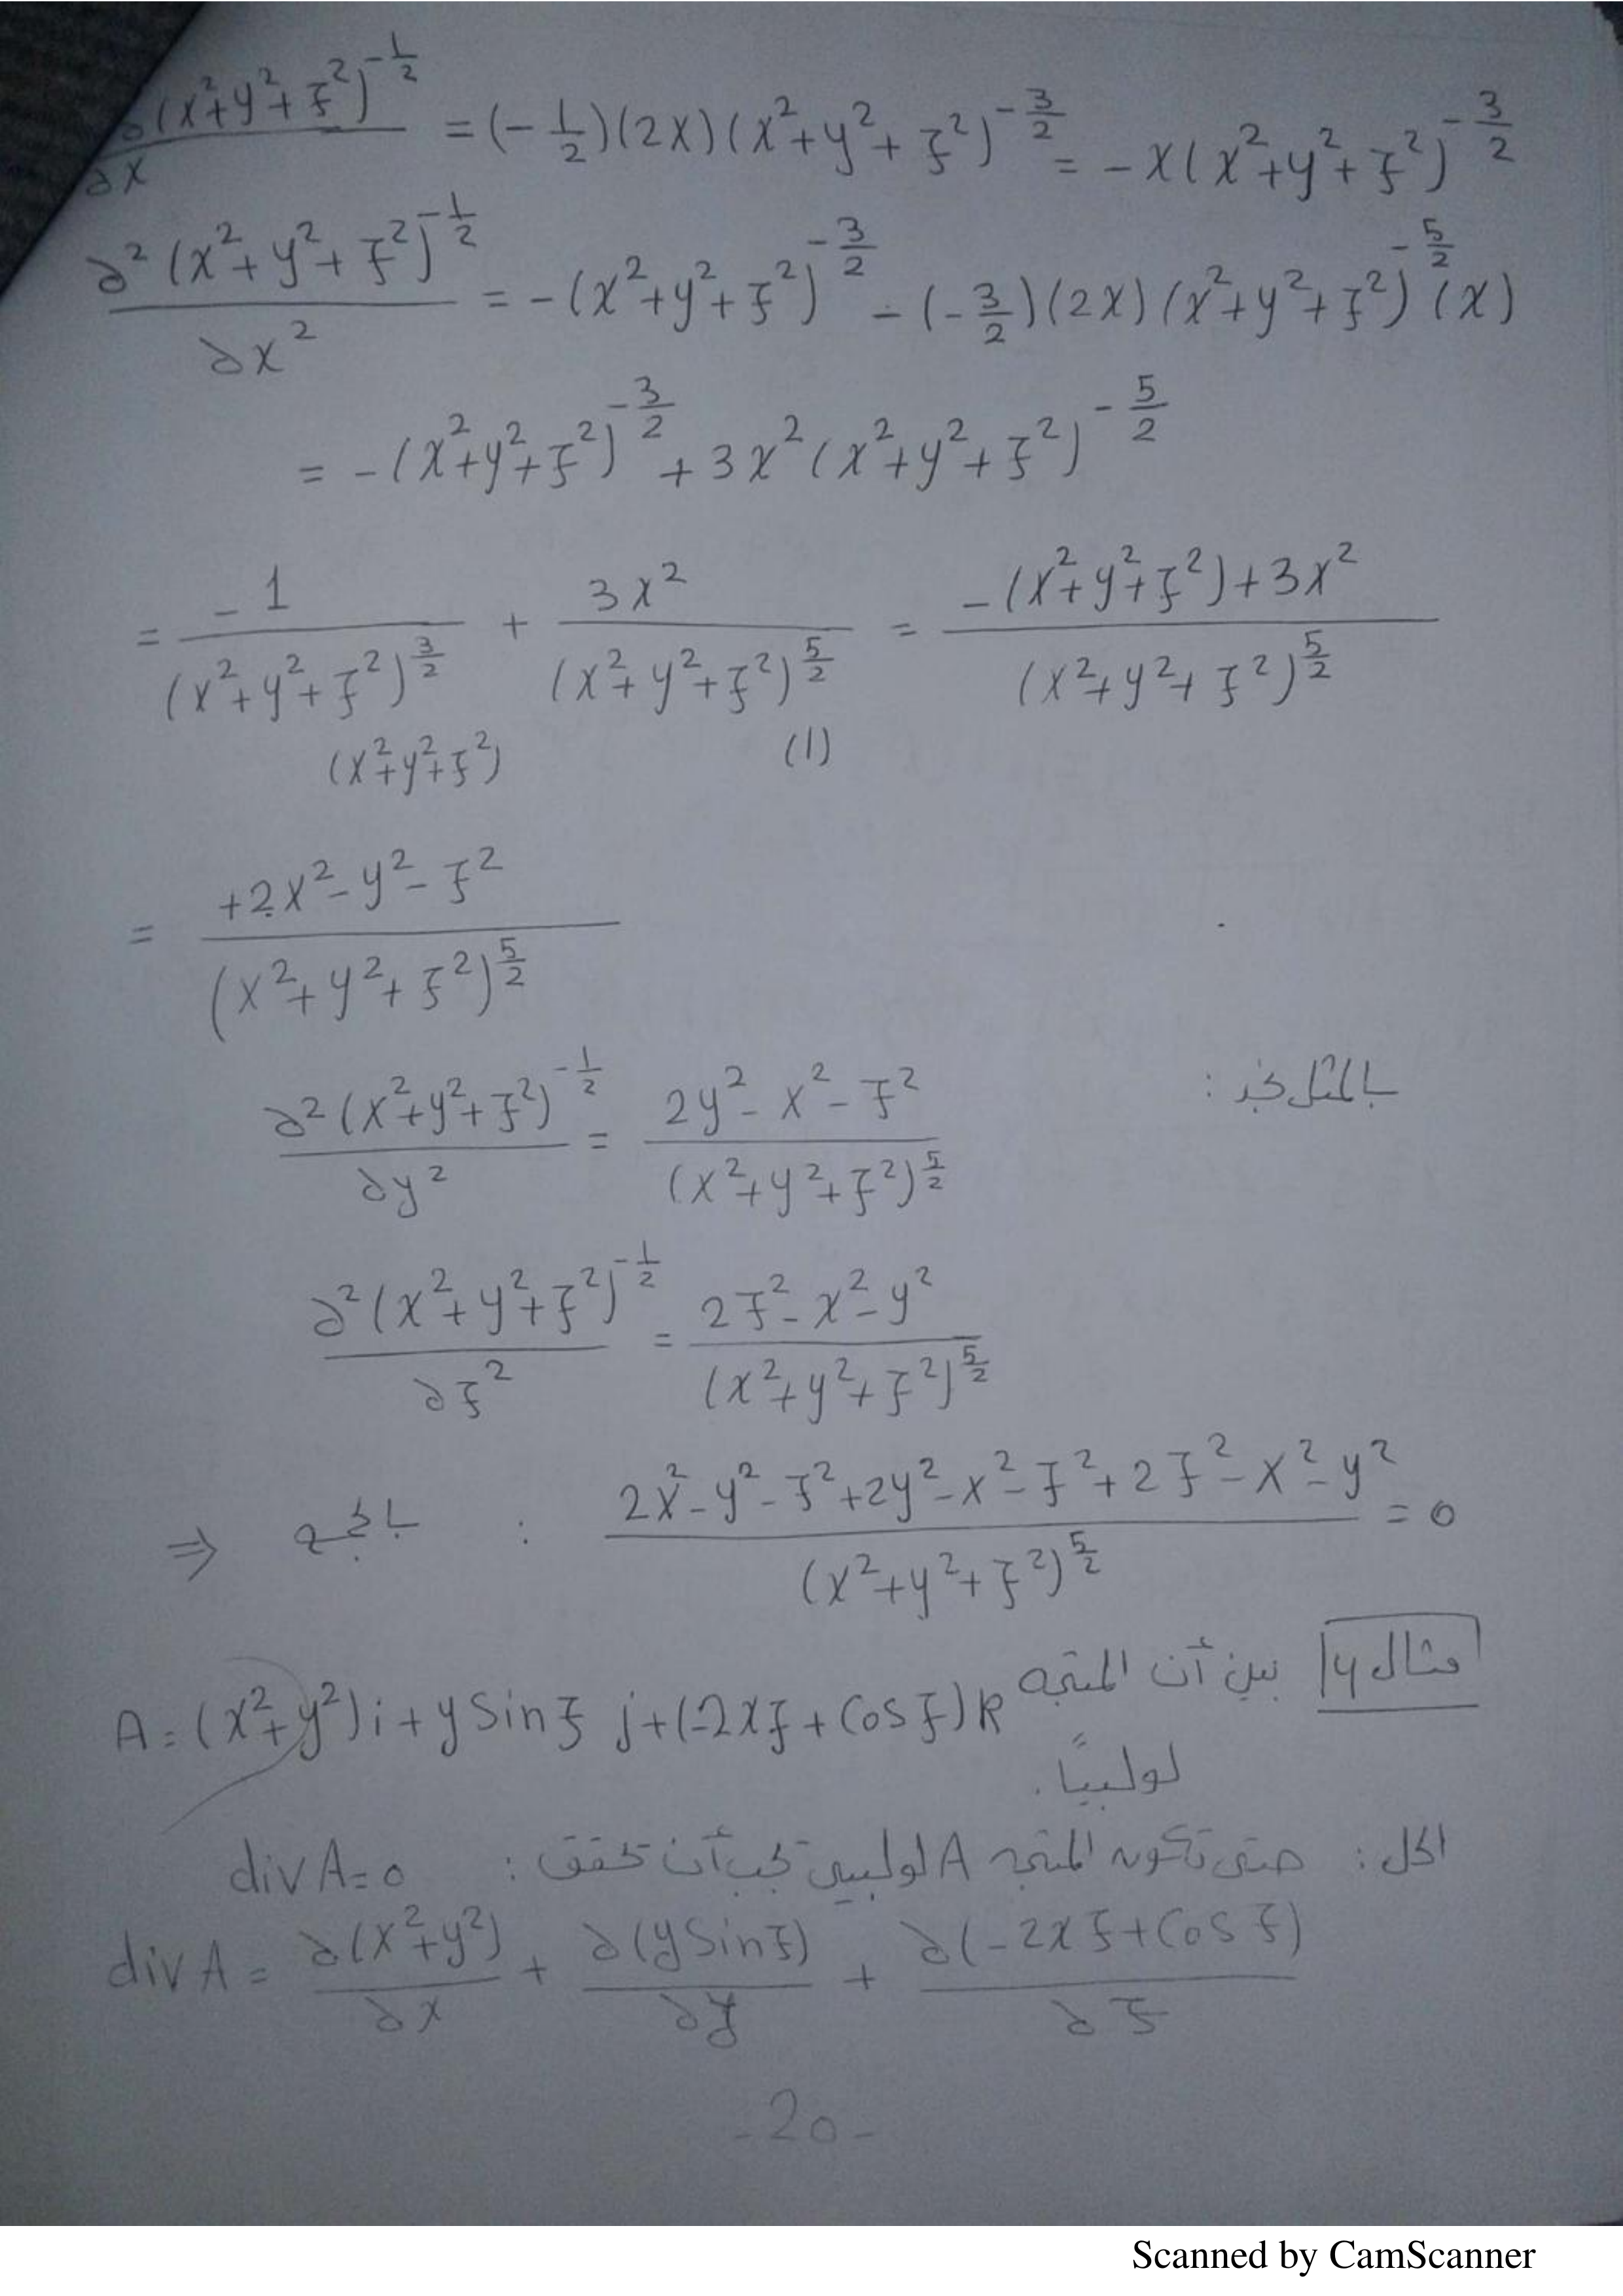 ∂(x²+y²+z²)^(-1/2) / ∂x = (-1/2)(2x)(x²+y²+z²)^(-3/2) = -x(x²+y²+z²)^(-3/2)
∂²(x²+y²+z²)^(-1/2) / ∂x² = -(x²+y²+z²)^(-3/2) - (-3/2)(2x)(x²+y²+z²)^(-5/2) (x)
= -(x²+y²+z²)^(-3/2) + 3x²(x²+y²+z²)^(-5/2)
= -1 / (x²+y²+z²)^(3/2) + 3x² / (x²+y²+z²)^(5/2) = -(x²+y²+z²)+3x² / (x²+y²+z²)^(5/2)
(x²+y²+z²) (1)
= +2x²-y²-z² / (x²+y²+z²)^(5/2)
بالمثل نجد :
∂²(x²+y²+z²)^(-1/2) / ∂y² = 2y²-x²-z² / (x²+y²+z²)^(5/2)
∂²(x²+y²+z²)^(-1/2) / ∂z² = 2z²-x²-y² / (x²+y²+z²)^(5/2)
⇒ بالجمع : 2x²-y²-z²+2y²-x²-z²+2z²-x²-y² / (x²+y²+z²)^(5/2) = 0
مثال 4 بين أن المتجه A=(x²+y²)i+y Sin z j+(-2xz+Cos z)k
لولبياً.
الحل : حتى تكون المتجه A لولبي يجب أن تحقق : div A=0
div A = ∂(x²+y²) / ∂x + ∂(y Sin z) / ∂y + ∂(-2xz+Cos z) / ∂z
-20-
Scanned by CamScanner